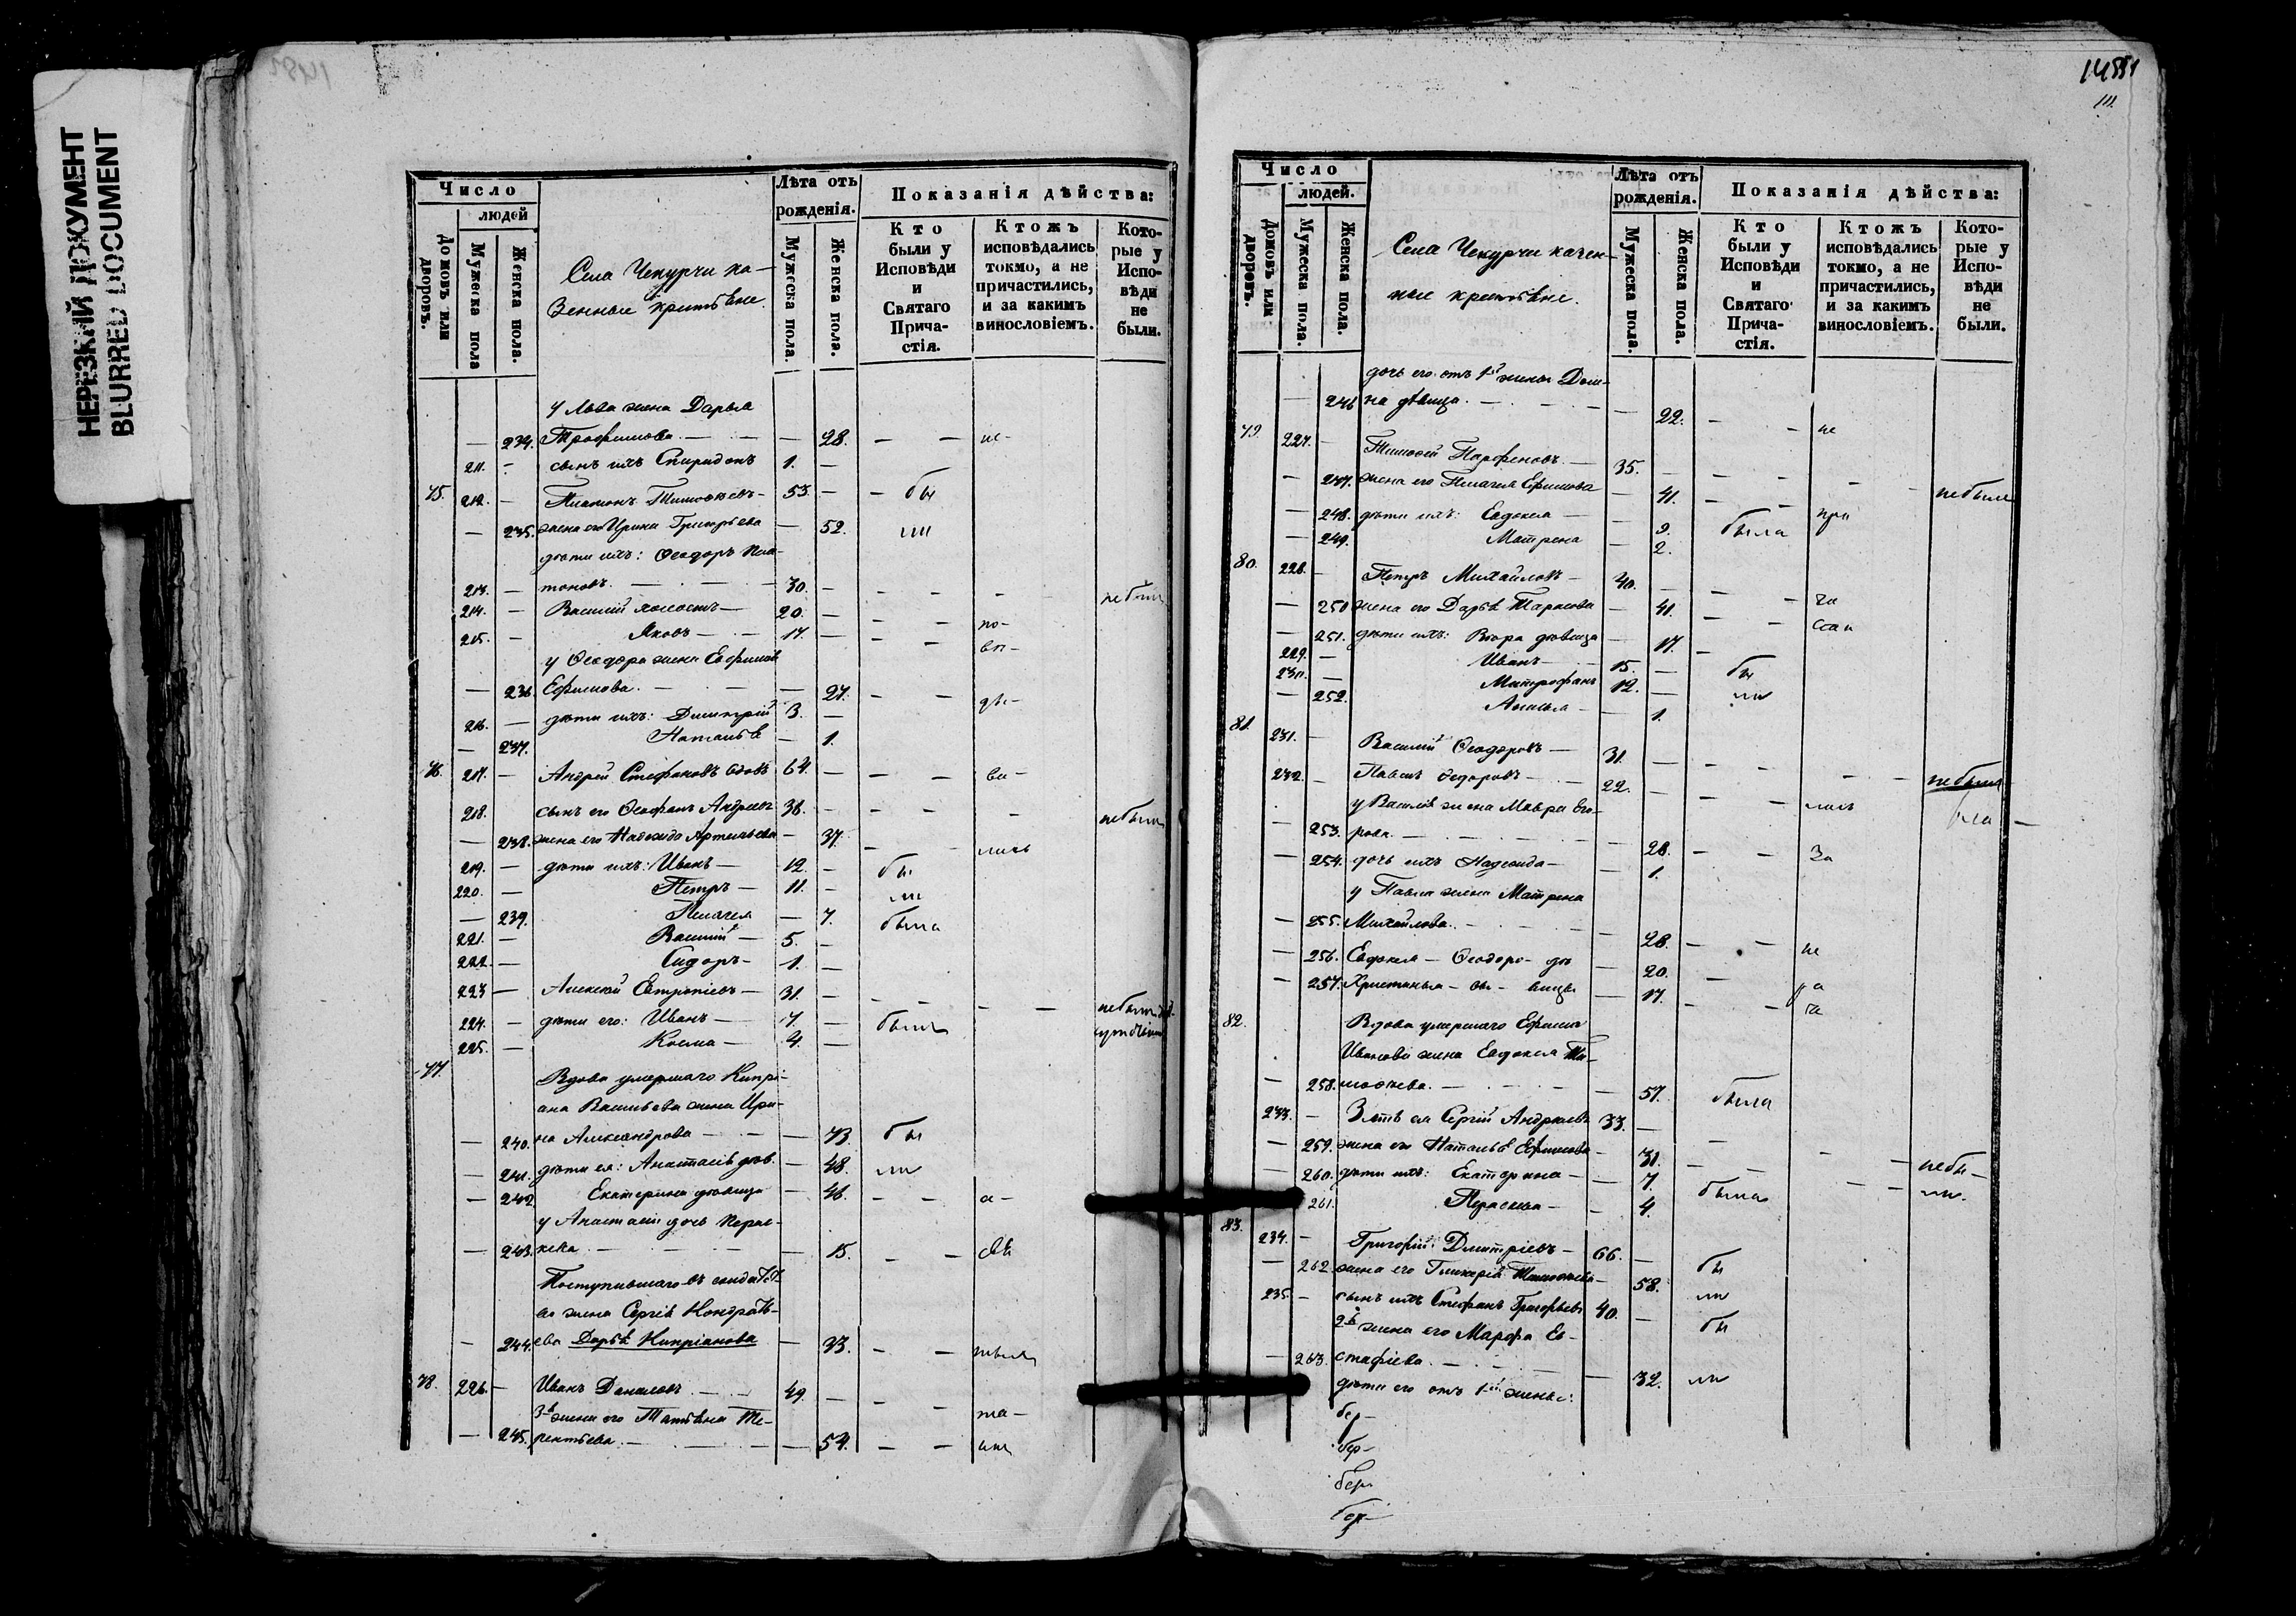 НЕРЕЗКИЙ ДОКУМЕНТ
BLURRED DOCUMENT
Число
людей
Домовъ или дворовъ.
Мужеска пола
Женска пола.
Села Чепурчи ка-
зенные крестьяне.
Лѣта отъ рожденія.
Мужеска пола.
Женска пола.
Показанія дѣйства:
Кто были у Исповѣди и Святаго Прича-стія.
Ктожъ исповѣдались токмо, а не причастились, и за какимъ винословіемъ.
Кото-рые у Испо-вѣди не были.
у Льва жена Дарья
— 234. Трофимова — — 28. — — не-
211. - сынъ ихъ Спиридонъ 1. —
75. 212. — Платонъ Тимоѳеевъ- 53. — — бы
— 235. жена его Ирина Григорьева — 52. ли
дѣти ихъ: Ѳеодоръ Пла-
213. — тоновъ. — 30. — — — — не были
214. — Василій холостъ — 20. — — — по-
215. — Яковъ — 17. — — —
у Ѳеодора жена
— 236. Ефимова. — — 27. — —
216. — дѣти ихъ: Димитрій 3. —
— 237. Наталья — 1.
76. 217. — Андрей Стефановъ вдовъ 64. — — —
218. сынъ его Ѳеофанъ Андреевъ 38. — — — не были
— 238. жена его Надежда Артемьева — 37. — — лись
219. — дѣти ихъ: Иванъ — 12. — бы
220. — Петръ — 11. — ли
— 239. Пелагея — 7. была
221. — Василій — 5. —
222. — Сидоръ — 1. —
223 — Алексѣй Евтропіевъ — 31. — — — — не были
224. — дѣти его: Иванъ — 7. — были
225. — Косма — 4. —
77. Вдова умершаго Кипрі-
ана Васильева жена Ири-
— 240. на Александрова — — 73. бы
— 241. дѣти ея: Анастасія дѣв. — 48. ли
— 242. Екатерина дѣвица — 46. — — а-
у Анастасіи дочь Парас-
— 243. кева — — 15. — —
Поступившаго въ солдатст-
во жена Сергѣя Кондрать-
— 244. ева Дарья Кипріанова — 33. — —
78. 226. — Иванъ Даниловъ. — 49. — — —
3я жена его Татьяна Те-
— 245. рентьева. — — 54. — —
111
Число
людей.
Домовъ или дворовъ.
Мужеска пола.
Женска пола.
Села Чепурчи казен-
ные крестьяне.
Лѣта отъ рожденія.
Мужеска пола.
Женска пола.
Показанія дѣйства:
Кто были у Исповѣди и Святаго Прича-стія.
Ктожъ исповѣдались токмо, а не причастились, и за какимъ винословіемъ.
Кото-рые у Испо-вѣди не были.
дочь его отъ 1й жены Дом-
— 246 на дѣвица. — — 22. — — не
79. 227. — Тимоѳей Парфеновъ. — 35. — — — — не были
— 247. жена его Пелагея Ефимова — 41. — — при
— 248. дѣти ихъ: Евдокія — — 9. была
— 249. Матрена — 2.
80. 228. — Петръ Михайловъ — 40. — — — ча
— 250 жена его Дарья Тарасова — 41. — —
— 251. дѣти ихъ: Вѣра дѣвица — 17. —
229. — Иванъ — 15. — бы
230. — Митрофанъ 12. — ли
— 252. — 1.
81. 231. — Василій Ѳеодоровъ — 31. — — — — не были
232. — Павелъ Ѳедоровъ — 22. — — — лись
у Василья жена Мавра Его-
— 253. рова. — — 28. — — за
— 254. дочь ихъ Надежда — — 1.
у Павла жена Матрена
— 255. Михайлова. — — 28. — — не
— 256. Евдокія — Ѳеодоро- дѣ — 20. —
— 257. Христинья — вы — вицы — 17. — —
82. Вдова умершаго Ефима
Иванова жена Евдокія Ти-
— 258. моѳеева. — — 57. была
233. — Зять ея Сергій Андреевъ 33. — — — — не бы-
— 259. жена его Наталья Ефимова — 31. — — — ли.
— 260. дѣти ихъ: Екатерина — — 7. была
261. Параскева — — 4.
83. 234. — Григорій Дмитріевъ — 66. — бы
— 262. жена его Гликерія Тимоѳеева — 58. ли
235. — сынъ ихъ Стефанъ Григорьевъ 40. — бы
2я жена его Марфа Ев-
— 263. стафіева. — — 32. ли
дѣти его отъ 1й жены: